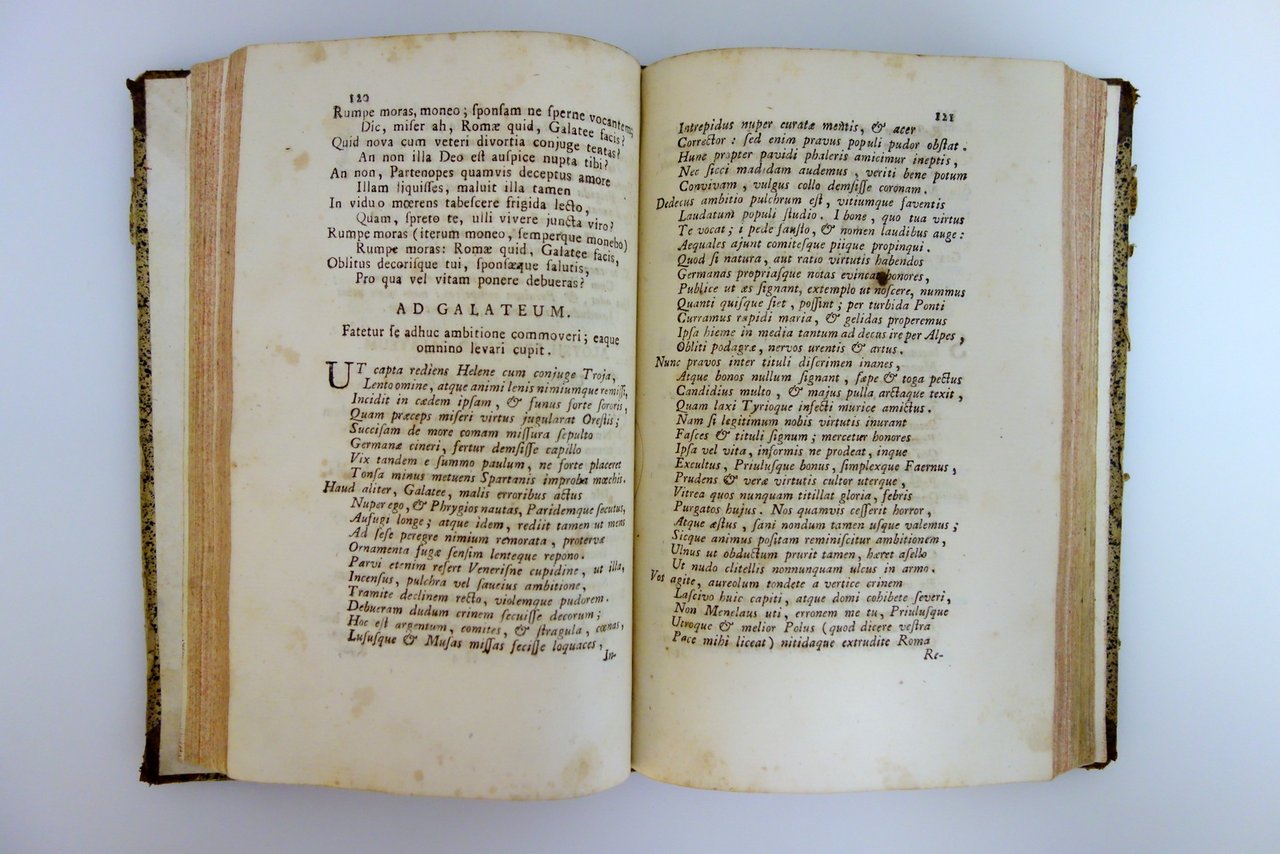 120
Rumpe moras, moneo; ſponſam ne ſperne vocantem;
Dic, miſer ah, Romæ quid, Galatee facis?
Quid nova cum veteri divortia conjuge tentas?
An non illa Deo eſt auſpice nupta tibi?
An non, Partenopes quamvis deceptus amore
Illam liquiſſes, maluit illa tamen
In viduo mœrens tabeſcere frigida lecto,
Quam, ſpreto te, ulli vivere juncta viro?
Rumpe moras (iterum moneo, ſemperque monebo)
Rumpe moras: Romæ quid, Galatee facis,
Oblitus decoriſque tui, ſponſæque ſalutis,
Pro qua vel vitam ponere debueras?
AD GALATEUM.
Fatetur ſe adhuc ambitione commoveri; eaque
omnino levari cupit.
UT capta rediens Helene cum conjuge Troja,
Lento omine, atque animi lenis nimiumque remiſſi,
Incidit in cædem ipſam, & funus forte ſororis,
Quam præceps miſeri virtus jugularat Oreſtis;
Succiſam de more comam miſſura ſepulto
Germanæ cineri, fertur demſiſſe capillo
Vix tandem e ſummo paulum, ne forte placeret
Tonſa minus metuens Spartanis improba mœchis.
Haud aliter, Galatee, malis erroribus actus
Nuper ego, & Phrygios nautas, Paridemque ſecutus,
Aufugi longe; atque idem, rediit tamen ut mens
Ad ſeſe peregre nimium remorata, protervæ
Ornamenta fugæ ſenſim lenteque repono.
Parvi etenim refert Veneriſne cupidine, ut illa,
Incenſus, pulchra vel ſaucius ambitione,
Tramite declinem recto, violemque pudorem.
Debueram dudum crinem ſecuiſſe decorum;
Hoc eſt argentum, comites, & ſtragula, cœnas,
Luſuſque & Muſas miſſas feciſſe loquaces,
In-
121
Intrepidus nuper curatæ mentis, & acer
Corrector: ſed enim pravus populi pudor obſtat.
Hunc propter pavidi phaleris amicimur ineptis,
Nec ſicci madidam audemus, veriti bene potum
Convivam, vulgus collo demſiſſe coronam.
Dedecus ambitio pulchrum eſt, vitiumque faventis
Laudatum populi ſtudio. I bone, quo tua virtus
Te vocat; i pede fauſto, & nomen laudibus auge:
Aequales ajunt comiteſque piique propinqui.
Quod ſi natura, aut ratio virtutis habendos
Germanas propriaſque notas evincat honores,
Publice ut æs ſignant, extemplo ut noſcere, nummus
Quanti quiſque ſiet, poſſint; per turbida Ponti
Curramus rapidi maria, & gelidas properemus
Ipſa hieme in media tantum ad decus ire per Alpes,
Obliti podagræ, nervos urentis & artus.
Nunc pravos inter tituli diſcrimen inanes,
Atque bonos nullum ſignant, ſæpe & toga pectus
Candidius multo, & majus pulla arctaque texit,
Quam laxi Tyrioque infecti murice amictus.
Nam ſi legitimum nobis virtutis inurant
Faſces & tituli ſignum; mercetur honores
Ipſa vel vita, informis ne prodeat, inque
Excultus, Priuluſque bonus, ſimplexque Faernus,
Prudens & veræ virtutis cultor uterque,
Vitrea quos nunquam titillat gloria, febris
Purgatos hujus. Nos quamvis ceſſerit horror,
Atque æſtus, ſani nondum tamen uſque valemus;
Sicque animus poſitam reminiſcitur ambitionem,
Ulnus ut obductum prurit tamen, hæret aſello
Ut nudo clitellis nonnunquam ulcus in armo.
Vos agite, aureolum tondete a vertice crinem
Laſcivo huic capiti, atque domi cohibete ſeveri,
Non Menelaus uti, erronem me tu, Priuluſque
Utroque & melior Polus (quod dicere veſtra
Pace mihi liceat) nitidaque extrudite Roma
Re-